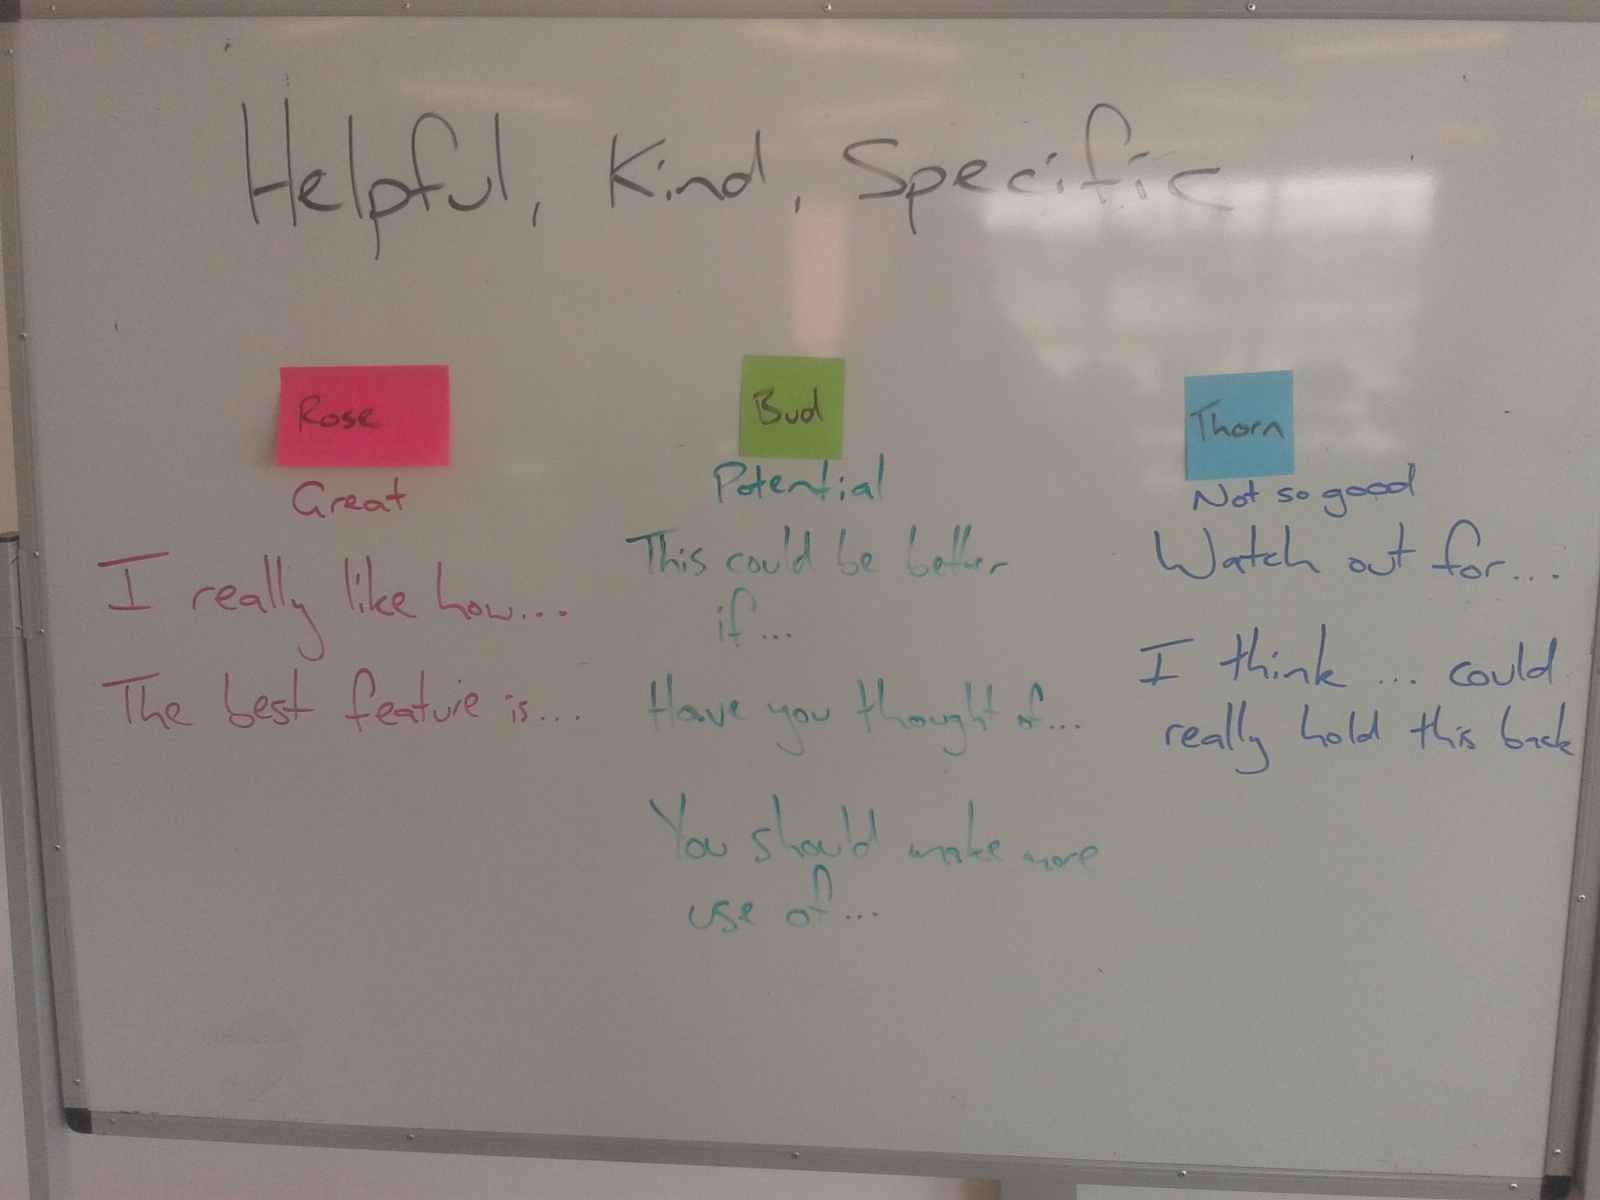 Helpful, Kind, Specific
Rose
Great
I really like how...
The best feature is...
Bud
Potential
This could be better
if...
Have you thought of...
You should make more
use of...
Thorn
Not so good
Watch out for...
I think ... could
really hold this back